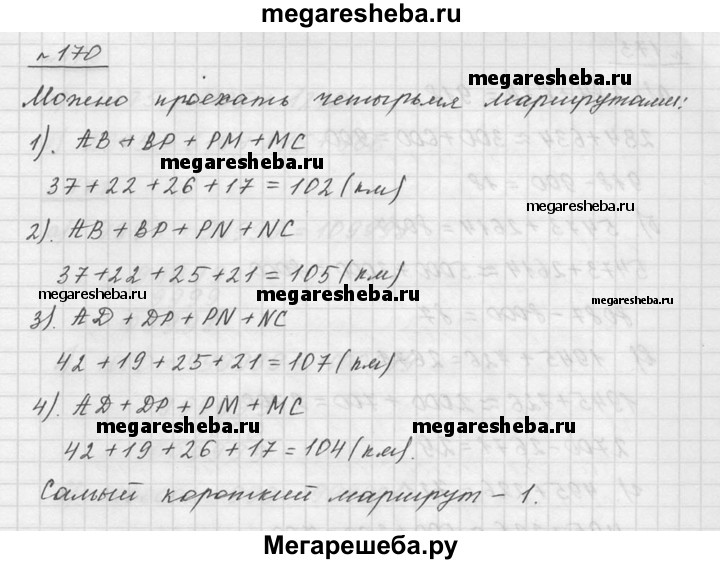 megaresheba.ru
№170
Можно проехать четырьмя маршрутами:
megaresheba.ru
1). AB + BP + PM + MC
megaresheba.ru
37+22+26+17=102(км)
megaresheba.ru
2). AB + BP + PN + NC
37+22+25+21=105(км)
megaresheba.ru megaresheba.ru megaresheba.ru
3). AD + DP + PN + NC
42+19+25+21=107(км)
4). AD + DP + PM + MC
megaresheba.ru megaresheba.ru
42+19+26+17=104(км).
Самый короткий маршрут – 1.
Мегарешеба.ру